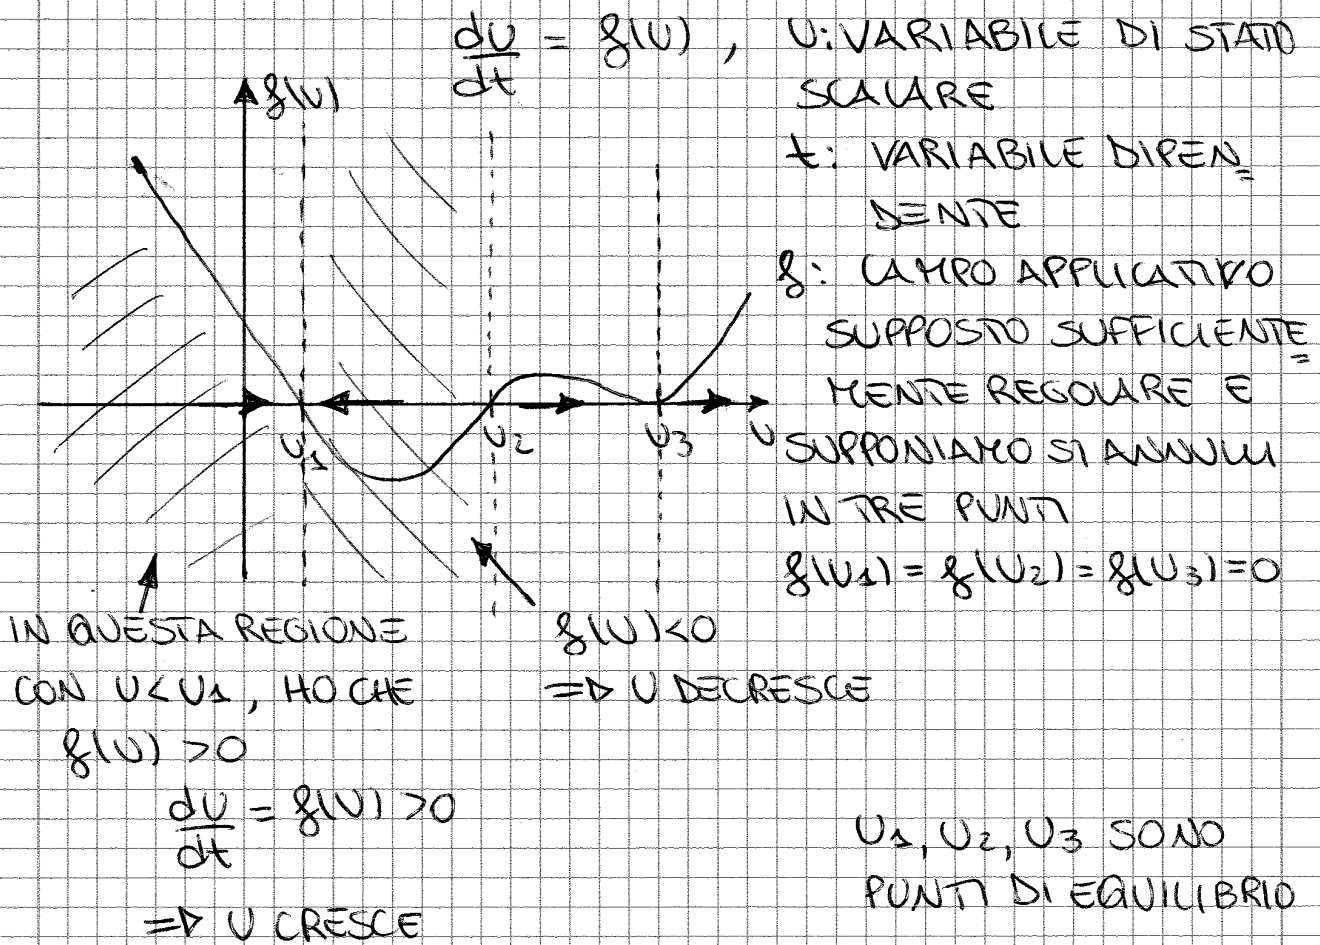 dU/dt = f(U) , U: VARIABILE DI STATO
SCALARE
t: VARIABILE DIPEN=
DENTE
f: CAMPO APPLICATIVO
SUPPOSTO SUFFICIENTE=
MENTE REGOLARE E
SUPPONIAMO SI ANNULLI
IN TRE PUNTI
f(U1) = f(U2) = f(U3) = 0
f(U)
U1
U2
U3
U
IN QUESTA REGIONE
CON U < U1, HO CHE
f(U) > 0
dU/dt = f(U) > 0
=> U CRESCE
f(U) < 0
=> U DECRESCE
U1, U2, U3 SONO
PUNTI DI EQUILIBRIO